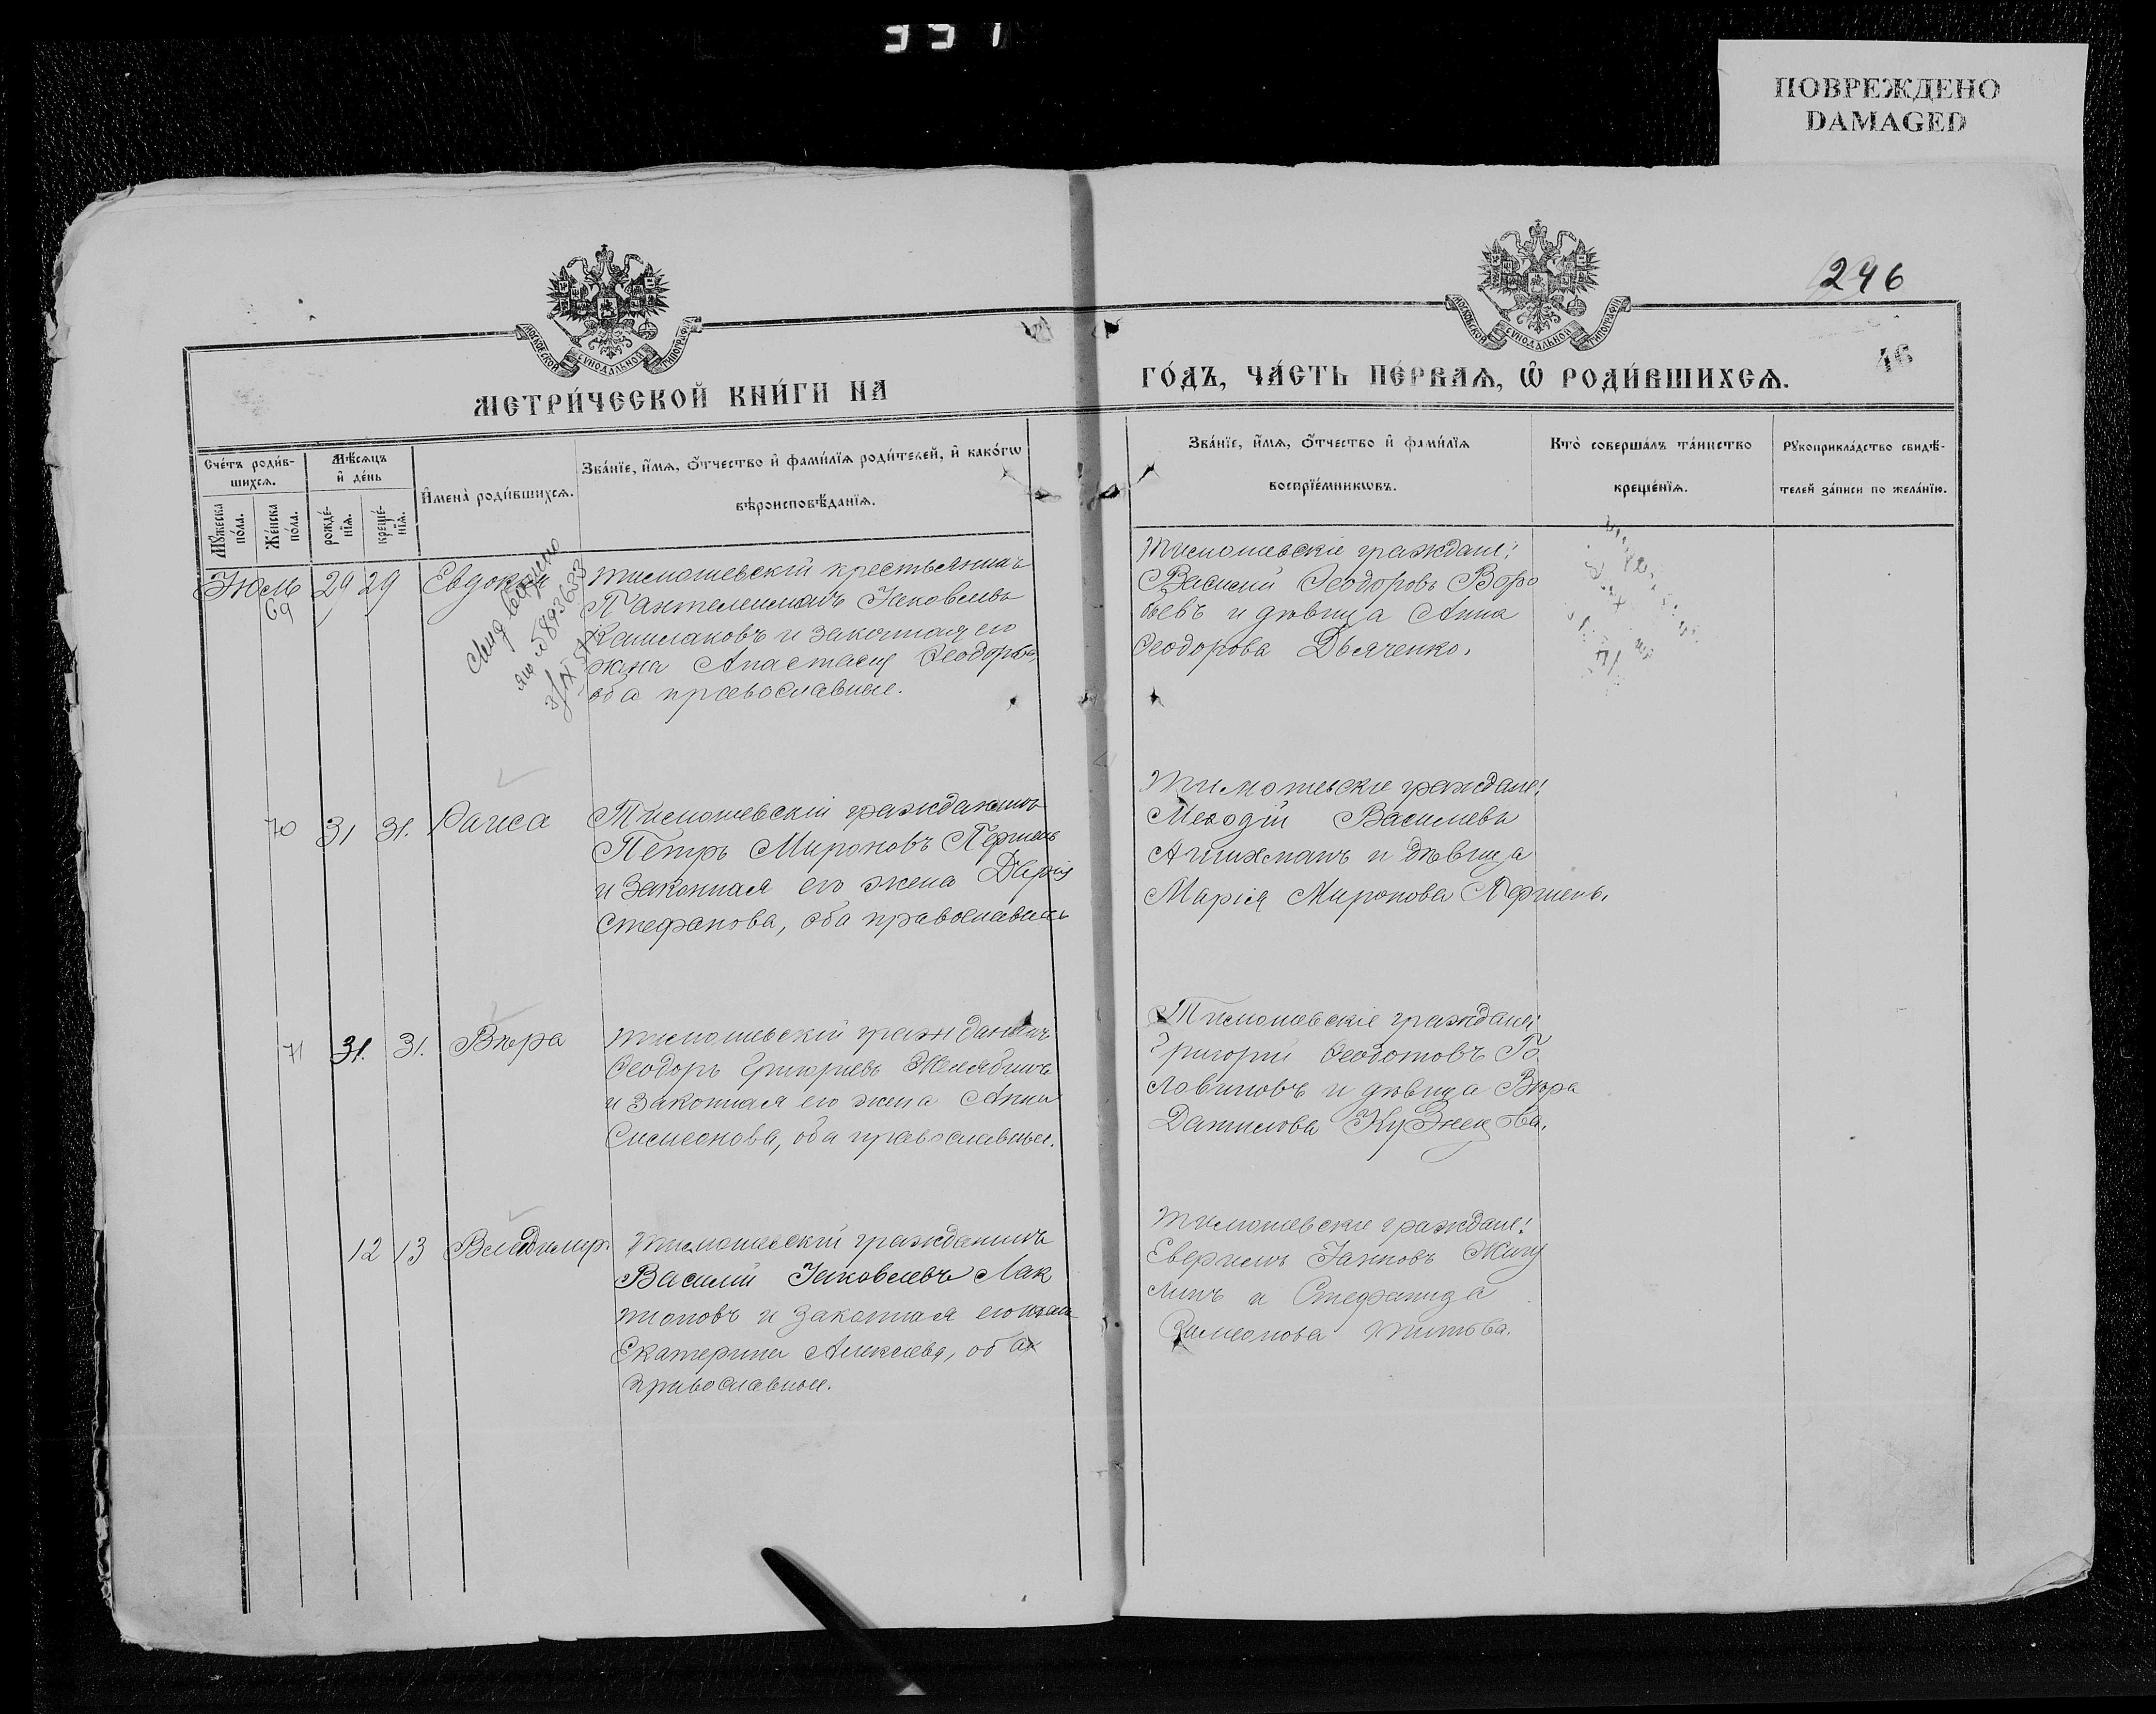 ПОВРЕЖДЕНО
DAMAGED
246
46
МОСКОВСКОЙ СѴНОДАЛЬНОЙ ТИПОГРАФІИ
МОСКОВСКОЙ СѴНОДАЛЬНОЙ ТИПОГРАФІИ
МЕТРИ́ЧЕСКОЙ КНИ́ГИ НА
ГО́ДЪ, ЧА́СТЬ ПЕ́РВАѦ, Ѽ РОДИ́ВШИХСѦ.
Сче́тъ роди́в-
шихсѧ.
Мꙋ́жеска по́ла.
Же́нска по́ла.
Мѣ́сяцъ
и҆ де́нь
рожде́-
нїѧ.
креще́-
нїѧ.
И҆мена̀ роди́вшихсѧ.
Зва́нїе, и҆́мѧ, ѻ҆́тчество и҆ фами́лїѧ роди́телей, и҆ како́гѡ
вѣроисповѣ́данїѧ.
Зва́нїе, и҆́мѧ, ѻ҆́тчество и҆ фами́лїѧ
воспрїе́мникѡвъ.
Кто̀ соверша́лъ та́инство
креще́нїѧ.
Рꙋкоприкла́дство свидѣ́-
телей за́писи по жела́нїю.
Июль
69 29 29
тимошевскій крестьянинъ
Пантелеимонъ Іаковлевъ
и законная его
жена Анастасія Ѳеодорова,
оба православные.
Тимошевскіе граждане:
Василій Ѳеодоровъ Воро
бьевъ и дѣвица Анна
Ѳеодорова Дьяченко.
70 31 31. Раиса
Тимошевскій гражданинъ
Петръ Мироновъ
и законная его жена Дарія
Стефанова, оба православные
Тимошевскіе граждане:
Меѳодій Васильевъ
и дѣвица
Марія Миронова
71 31. 31. Вѣра
тимошевскій гражданинъ
Ѳеодоръ Григорьевъ
и законная его жена Анна
Симеонова, оба православные.
Тимошевскіе граждане:
Григорій Ѳеодотовъ Го
ловиновъ и дѣвица Вѣра
Данилова Кузнецова.
12 13 Владимиръ.
тимошевскій гражданинъ
Василій Іаковлевъ Лак
тіоновъ и законная его жена
Екатерина Алексіева, оба
православные.
тимошевскіе граждане:
и Стефанида
Симеонова Титова.